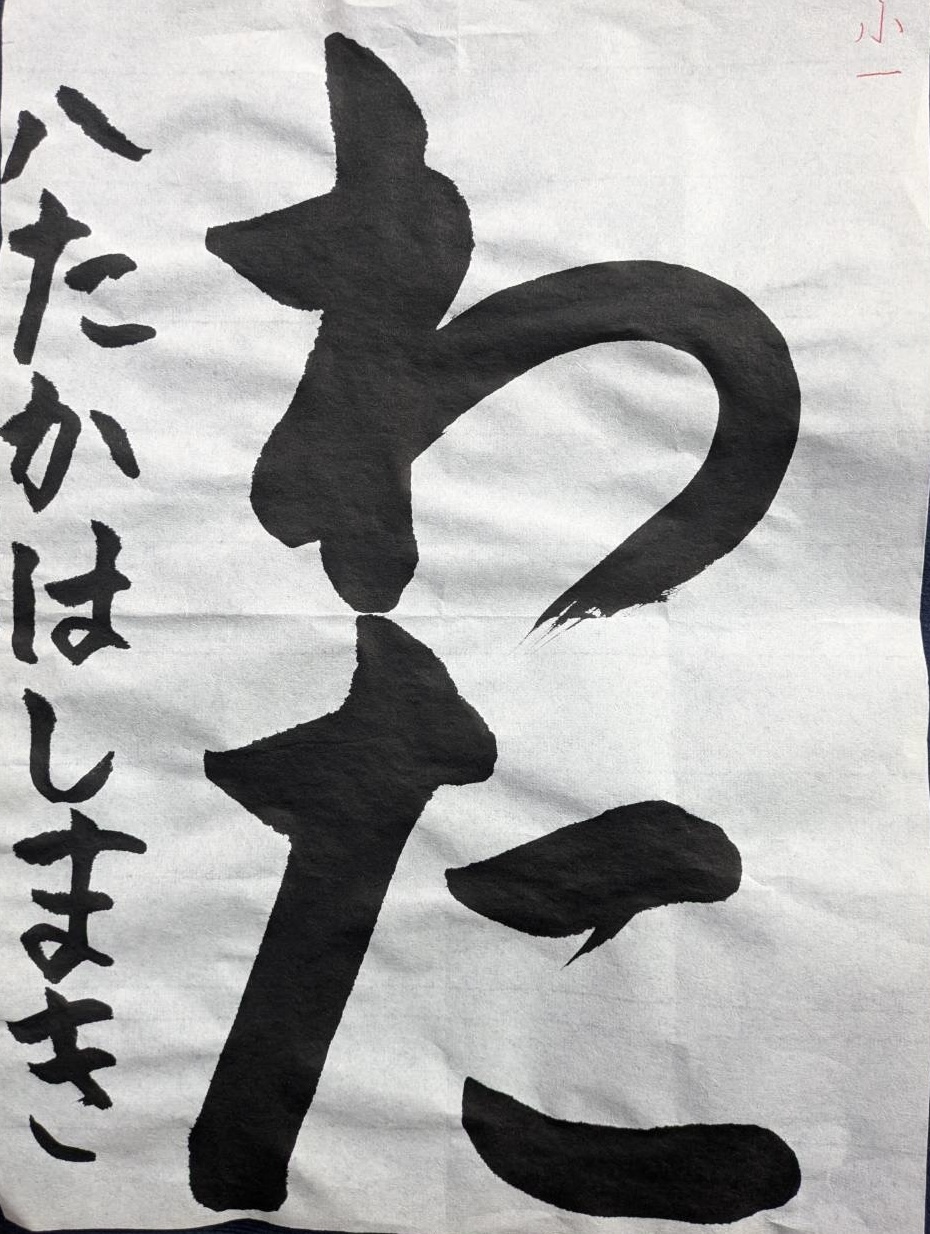 小一
わた
八たかはしまき